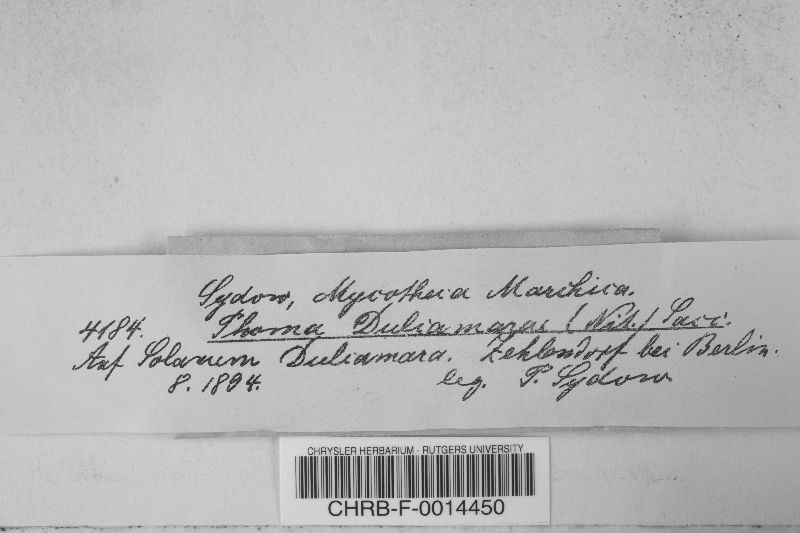 Sydow, Mycotheca Marchica.
4184. Phoma Dulcamarae (Nit.) Sacc.
Auf Solanum Dulcamara. Zehlendorf bei Berlin.
8. 1894. leg. P. Sydow
CHRYSLER HERBARIUM - RUTGERS UNIVERSITY
CHRB-F-0014450